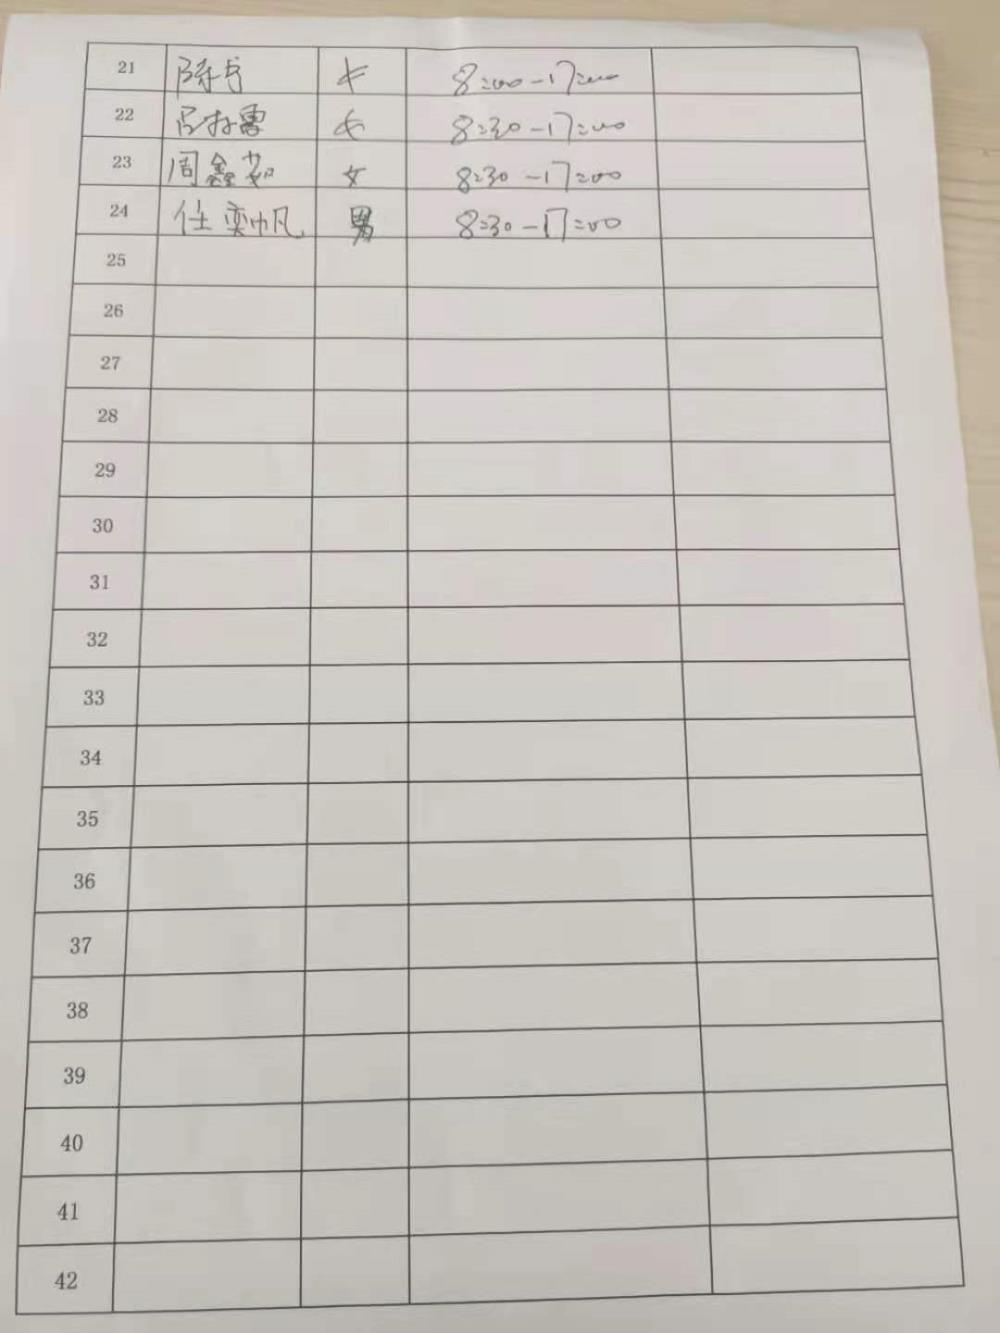 21 陈书 女 8:00-17:00
22 女 8:30-17:00
23 周鑫茹 女 8:30-17:00
24 任奕帆 男 8:30-17:00
25
26
27
28
29
30
31
32
33
34
35
36
37
38
39
40
41
42